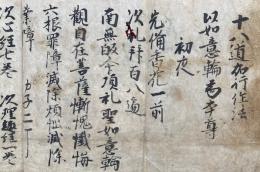 十八道加行作法
以如意輪為本尊
初夜
先備香花一前
次礼拜百八遍
南無啟令頂礼聖如意輪
觀自在菩薩慚愧懺悔
六根罪障滅除煩惱滅除
業障
次心経七巻 次理趣経一巻